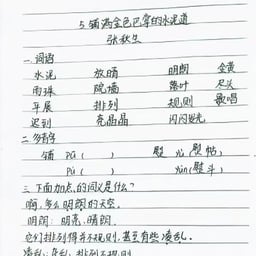 5.铺满金色巴掌的水泥道
张秋生
一.词语
水泥 放晴 明朗 金黄
雨珠 院墙 落叶 尽头
平展 排列 规则 歌唱
迟到 亮晶晶 闪闪发光
二.多音字
铺 pū( ) 熨 yù(熨帖)
pù( ) yùn(熨斗)
三.下面加点的词义是什么?
啊,多么明朗的天空.
明朗:明亮,晴朗.
它们排列得并不规则,甚至有些凌乱.
凌乱:杂乱,排列不规则